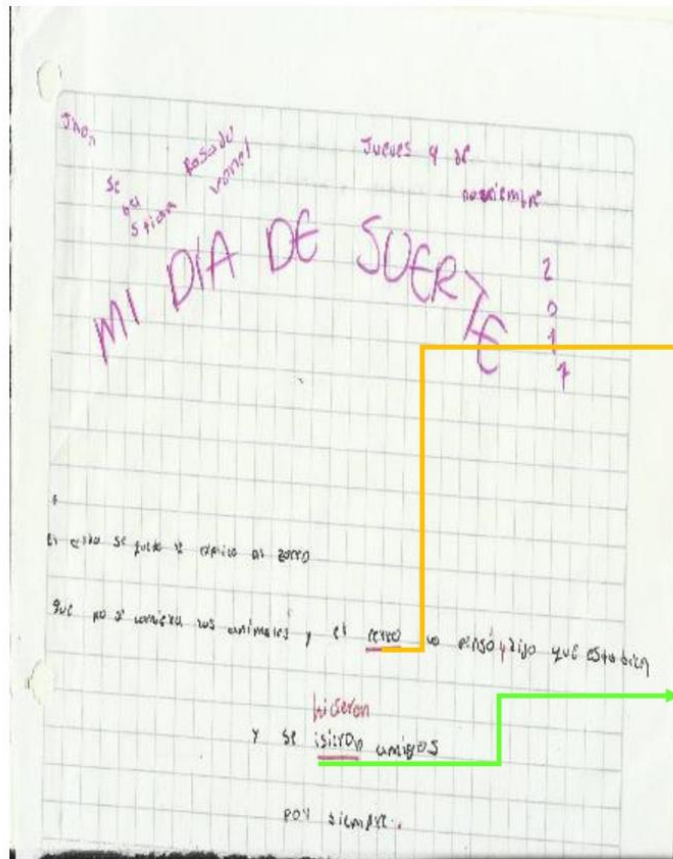 Jhon
se
ba
stian
Rosado
Jueves 9 de
noviembre
2
0
1
7
MI DÍA DE SUERTE
se quedo
zorro
que no se comiera los animales y el cerro lo pensó y dijo que esta bien
hicieron
y se isieron amigos
por siempre.